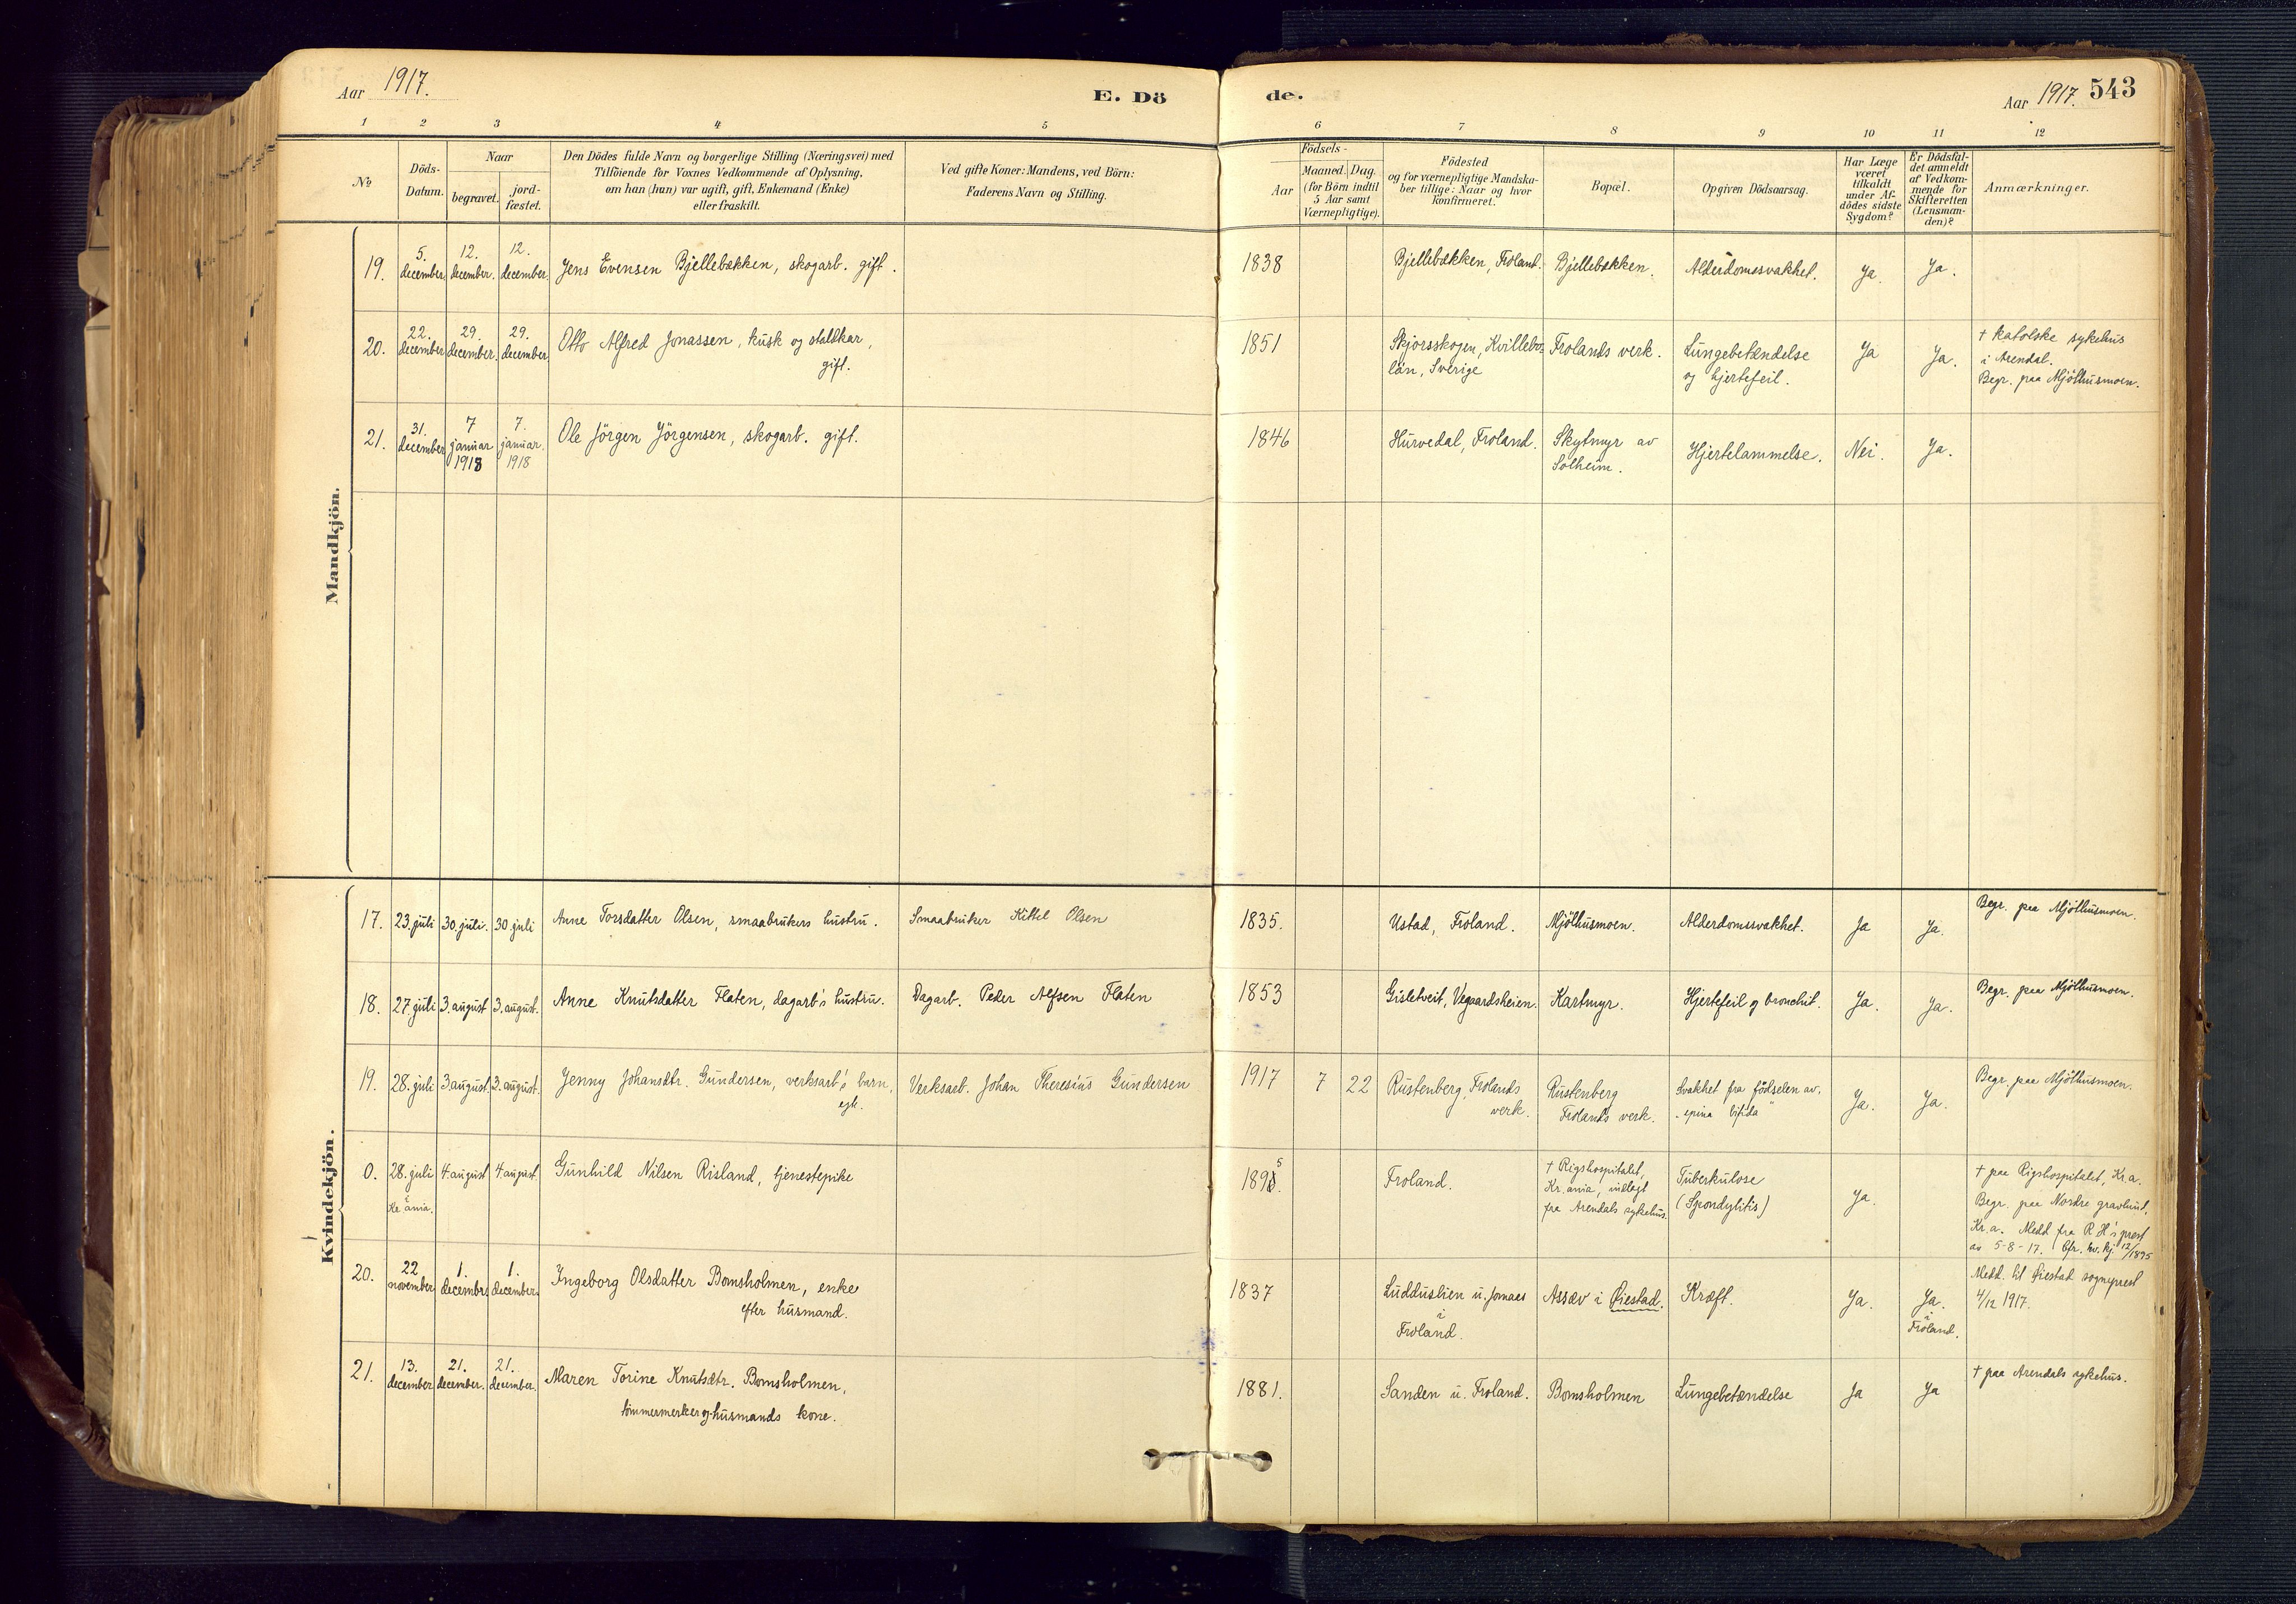 Aar 1917.
E. Dö
de.
Aar 1917. 543
1 2 3 4 5 6 7 8 9 10 11 12
№
Döds-
Datum.
Naar
begravet.
jord-
fæstet.
Den Dödes fulde Navn og borgerlige Stilling (Næringsvei) med
Tilföiende for Voxnes Vedkommende af Oplysning,
om han (hun) var ugift, gift, Enkemand (Enke)
eller fraskilt.
Ved gifte Koner: Mandens, ved Börn:
Faderens Navn og Stilling.
Födsels-
Aar
Maaned. Dag.
(for Börn indtil
5 Aar samt
Værnepligtige).
Födested
og for værnepligtige Mandska-
ber tillige: Naar og hvor
konfirmeret.
Bopæl.
Opgiven Dödsaarsag.
Har Læge
været
tilkaldt
under Af-
dödes sidste
Sygdom?
Er Dödsfal-
det anmeldt
af Vedkom-
mende for
Skifteretten
(Lensman-
den)?
Anmærkninger.
Mandkjön.
19.
5.
december
12.
december.
12.
december.
Jens Evensen Bjellebækken, skogarb. gift.
1838
Bjellebækken, Froland.
Bjellebækken.
Alderdomssvakhet.
Ja.
Ja.
20.
22.
december
29.
december.
29.
december
Otto Alfred Jonassen, kusk og staldkar,
gift.
1851
Skjorsskogen, Kvillebo-
län, Sverige
Frolands verk.
Lungebetændelse
og hjertefeil.
Ja
Ja.
† katolske sykehus
i Arendal.
Begr. paa Mjölhusmoen.
21.
31.
december
7
januar
1918
7.
januar.
1918
Ole Jörgen Jörgensen, skogarb. gift.
1846
Hurvedal, Froland.
Skytmyr av
Solheim.
Hjertelammelse.
Nei.
Ja.
Kvindekjön.
17.
23. juli
30. juli.
30 juli
Anne Torsdatter Olsen, smaabrukers hustru.
Smaabruker Kittel Olsen
1835.
Ustad, Froland.
Mjölhusmoen.
Alderdomssvakhet.
Ja
Ja.
Begr. paa Mjölhusmoen.
18.
27. juli
3. august
3. august.
Anne Knutsdatter Flaten, dagarb's hustru.
Dagarb. Peder Alfsen Flaten
1853
Gisletveit, Vegaardsheien.
Kartmyr.
Hjertefeil og bronchit.
Ja.
Ja.
Begr. paa Mjölhusmoen.
19.
28. juli
3. august.
3. august.
Jenny Johansdtr. Gundersen, verksarb's barn,
egte.
Verksarb. Johan Theresius Gundersen
1917
7
22
Rustenberg, Frolands
verk.
Rustenberg
Frolands verk.
Svakhet fra födselen av.
„spina bifida”
Ja.
Ja.
Begr. paa Mjölhusmoen.
0.
28. juli
i
Kr.ania.
4. august
4. august
Gunhild Nilsen Risland, tjenestepike
1895.
Froland.
† Rigshospitalet,
Kr.ania, indlagt
fra Arendals sykehus.
Tuberkulose
(Spondylitis)
Ja.
† paa Rigshospitalet, Kr.a.
Begr. paa Nordre gravlund,
Kr.a. Medd fra R.H's prest
av 5-8-17. Cfr. kv.kj. 12/1895
20.
22
november
1.
decembr.
1.
december.
Ingeborg Olsdatter Bomsholmen, enke
efter husmand.
1837
Ludduslien u. Jomaas
i
Froland.
Assæv i Øiestad.
Kræft.
Ja.
Ja.
i
Froland.
Medd. til Øiestad sogneprest
4/12 1917.
21.
13.
december
21.
december.
21.
december.
Maren Torine Knutsdtr. Bomsholmen,
tömmermerker og husmands kone.
1881.
Sanden u. Froland.
Bomsholmen
Lungebetændelse
Ja
Ja
† paa Arendals sykehus.